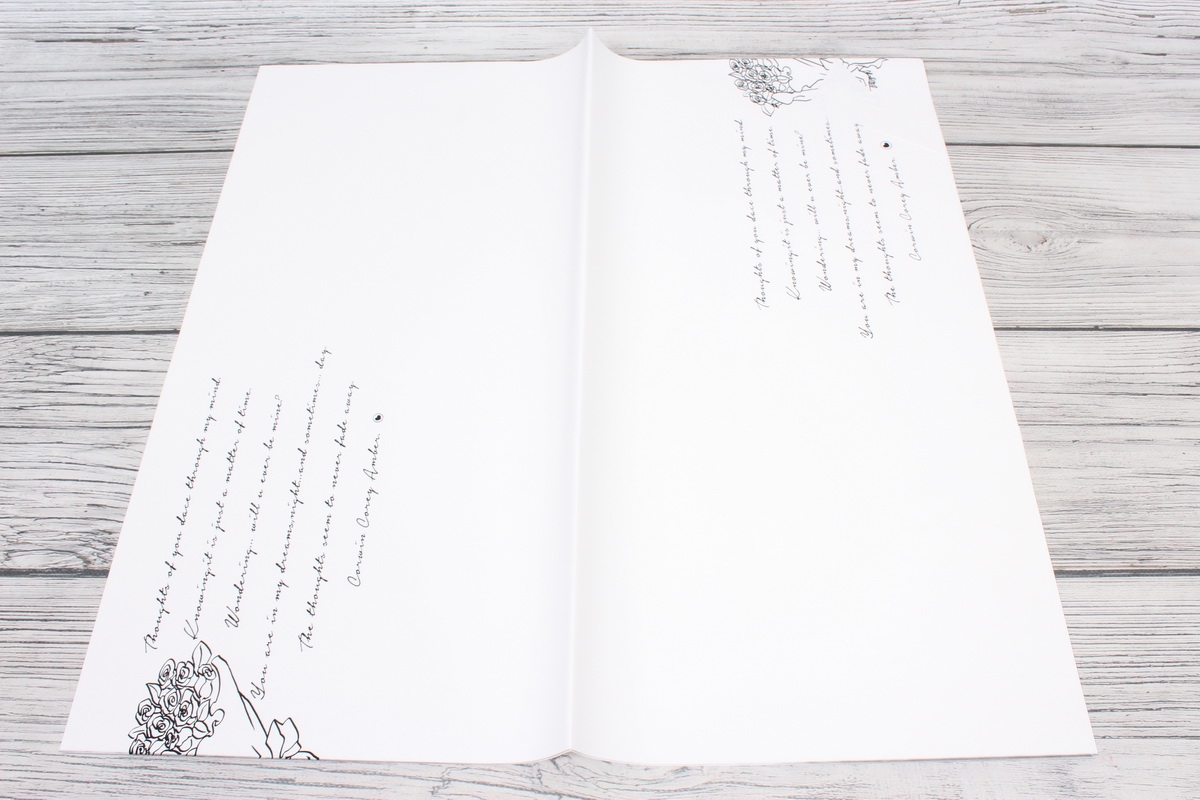 Thoughts of you dace through my mind
Knowing it is just a matter of time.
Wondering... will u ever be mine?
You are in my dreams night...and sometimes...day
The thoughts seem to never fade away.
Corwin Corey Amber
Thoughts of you dace through my mind
Knowing it is just a matter of time
Wondering... will u ever be mine?
You are in my dreams night...and sometimes...
The thoughts seem to never fade away
Corwin Corey Amber